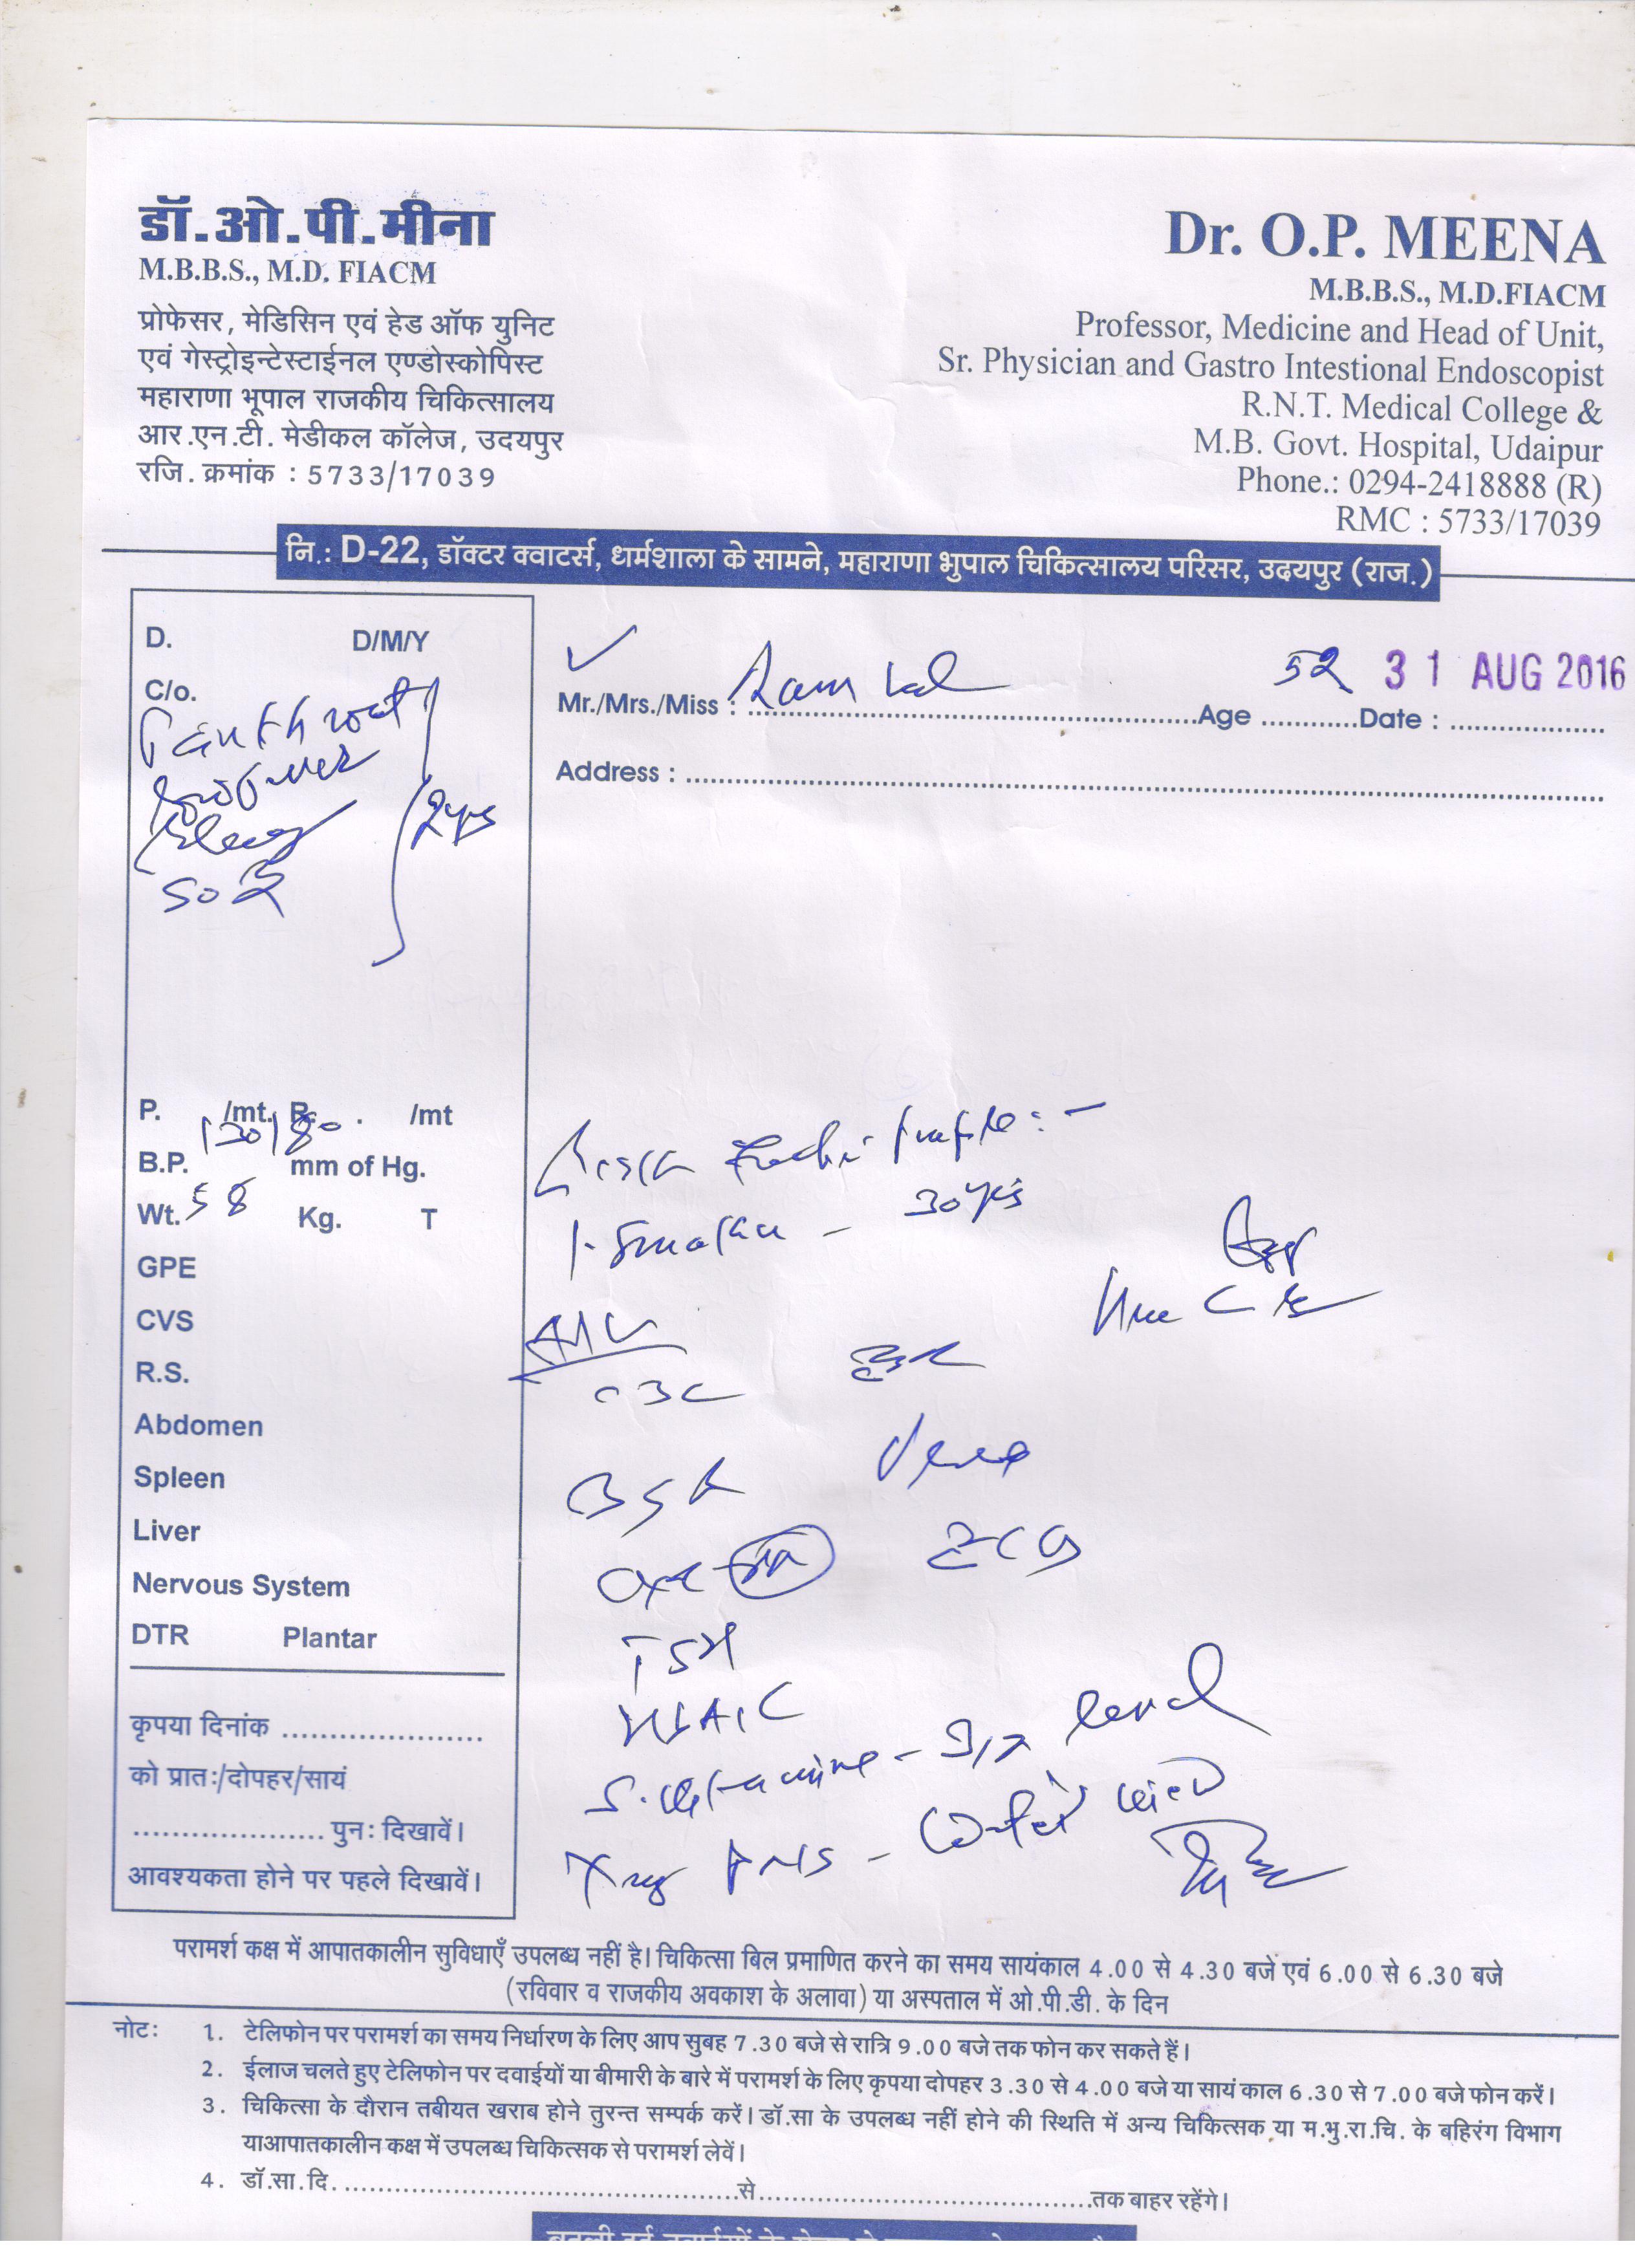 डॉ.ओ.पी.मीना
M.B.B.S., M.D. FIACM
प्रोफेसर, मेडिसिन एवं हेड ऑफ युनिट
एवं गेस्ट्रोइन्टेस्टाईनल एण्डोस्कोपिस्ट
महाराणा भूपाल राजकीय चिकित्सालय
आर.एन.टी. मेडीकल कॉलेज, उदयपुर
रजि. क्रमांक : 5733/17039
Dr. O.P. MEENA
M.B.B.S., M.D.FIACM
Professor, Medicine and Head of Unit,
Sr. Physician and Gastro Intestional Endoscopist
R.N.T. Medical College &
M.B. Govt. Hospital, Udaipur
Phone.: 0294-2418888 (R)
RMC : 5733/17039
नि.: D-22, डॉक्टर क्वाटर्स, धर्मशाला के सामने, महाराणा भुपाल चिकित्सालय परिसर, उदयपुर (राज.)
D. D/M/Y
C/o.
2yrs
Mr./Mrs./Miss : Ram Lal Age 52 Date : 31 AUG 2016
Address :
P. /mt. R. /mt
B.P. 130/80 mm of Hg.
Wt. 58 Kg. T
GPE
CVS
R.S.
Abdomen
Spleen
Liver
Nervous System
DTR Plantar
कृपया दिनांक
को प्रातः/दोपहर/सायं
पुनः दिखावें।
आवश्यकता होने पर पहले दिखावें।
profile :-
30 yrs
CBC
ECG
TSH
HbA1C
level
Xray PNS - view
परामर्श कक्ष में आपातकालीन सुविधाएँ उपलब्ध नहीं है। चिकित्सा बिल प्रमाणित करने का समय सायंकाल 4.00 से 4.30 बजे एवं 6.00 से 6.30 बजे
(रविवार व राजकीय अवकाश के अलावा) या अस्पताल में ओ.पी.डी. के दिन
नोटः 1. टेलिफोन पर परामर्श का समय निर्धारण के लिए आप सुबह 7.30 बजे से रात्रि 9.00 बजे तक फोन कर सकते हैं।
2. ईलाज चलते हुए टेलिफोन पर दवाईयों या बीमारी के बारे में परामर्श के लिए कृपया दोपहर 3.30 से 4.00 बजे या सायं काल 6.30 से 7.00 बजे फोन करें।
3. चिकित्सा के दौरान तबीयत खराब होने तुरन्त सम्पर्क करें। डॉ.सा के उपलब्ध नहीं होने की स्थिति में अन्य चिकित्सक या म.भु.रा.चि. के बहिरंग विभाग
याआपातकालीन कक्ष में उपलब्ध चिकित्सक से परामर्श लेवें।
4. डॉ.सा.दि. से तक बाहर रहेंगे।